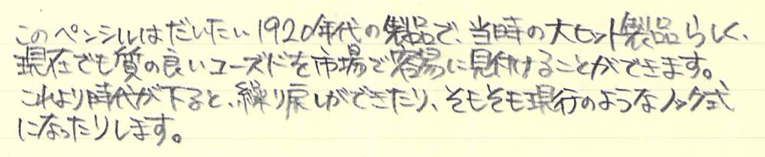 このペンシルはだいたい1920年代の製品で、当時の大ヒット製品らしく、
現在でも質の良いユーズドを市場で容易に見付けることができます。
これより時代が下ると、繰り戻しができたり、そもそも現行のようなノック式
になったりします。